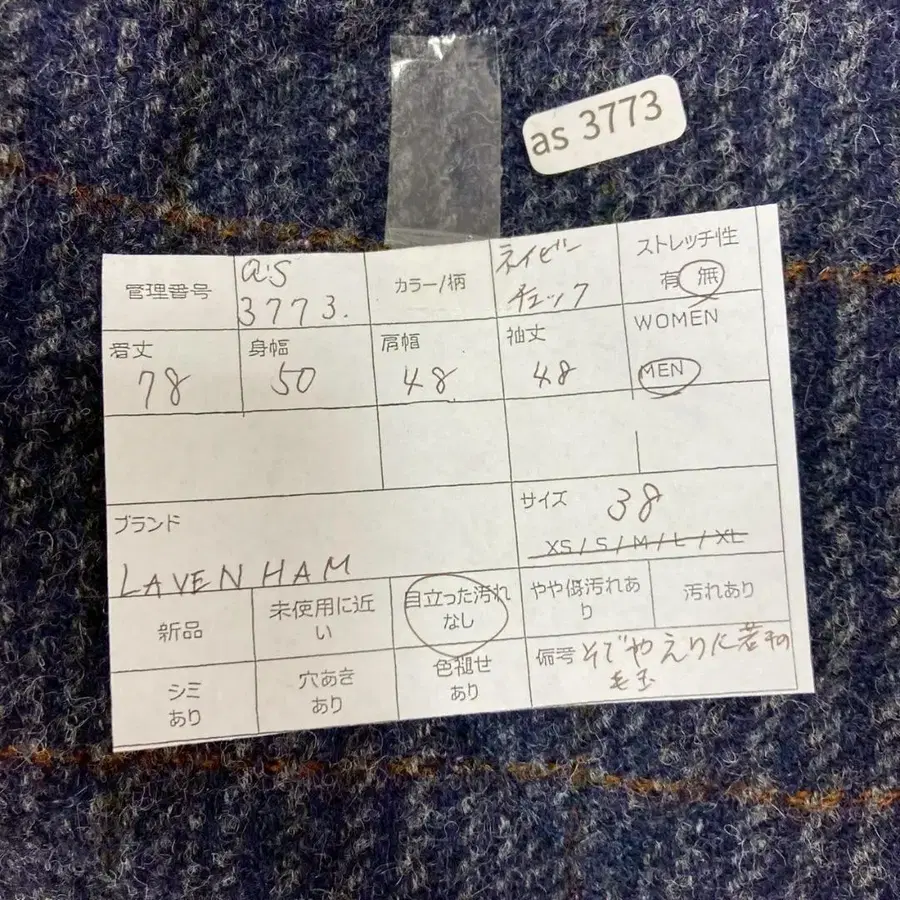 as 3773
管理番号
a:s
3773.
カラー/柄
ネイビー
チェック
ストレッチ性
有 無
着丈
78
身幅
50
肩幅
48
袖丈
48
WOMEN
MEN
ブランド
LAVENHAM
サイズ
38
XS / S / M / L / XL
新品
未使用に近
い
目立った汚れ
なし
やや傷汚れあ
り
汚れあり
シミ
あり
穴あき
あり
色褪せ
あり
備考 そでやえりに若干の
毛玉